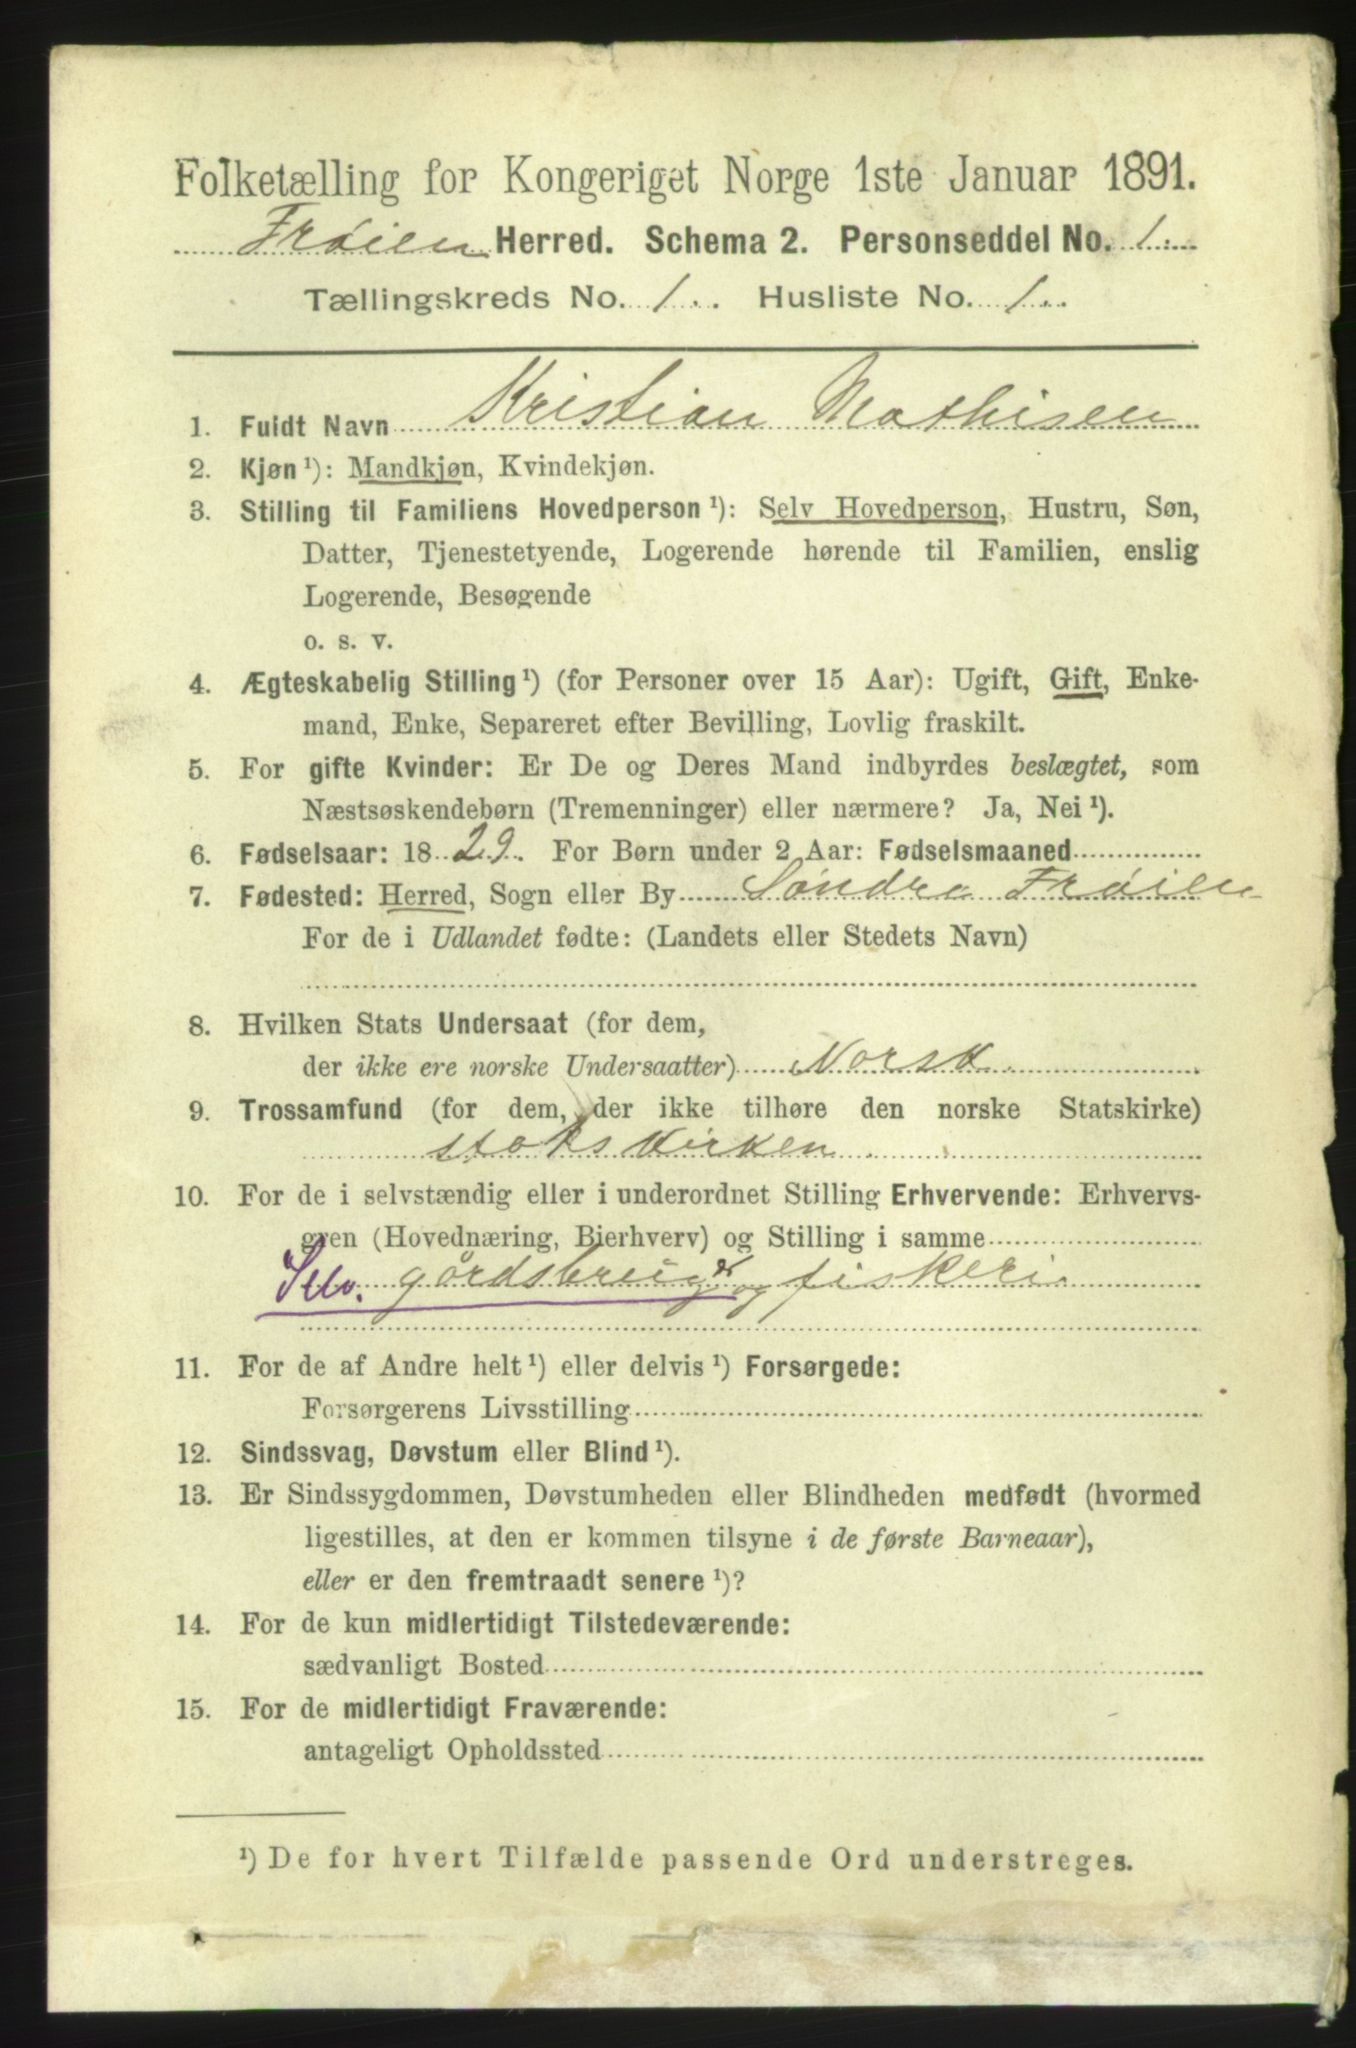 Folketælling for Kongeriget Norge 1ste Januar 1891.
Frøien Herred. Schema 2. Personseddel No. 1.
Tællingskreds No. 1. Husliste No. 1.
1. Fuldt Navn Kristian Mathisen
2. Kjøn ¹): Mandkjøn, Kvindekjøn.
3. Stilling til Familiens Hovedperson ¹): Selv Hovedperson, Hustru, Søn,
Datter, Tjenestetyende, Logerende hørende til Familien, enslig
Logerende, Besøgende
o. s. v.
4. Ægteskabelig Stilling ¹) (for Personer over 15 Aar): Ugift, Gift, Enke-
mand, Enke, Separeret efter Bevilling, Lovlig fraskilt.
5. For gifte Kvinder: Er De og Deres Mand indbyrdes beslægtet, som
Næstsøskendebørn (Tremenninger) eller nærmere? Ja, Nei ¹).
6. Fødselsaar: 1829. For Børn under 2 Aar: Fødselsmaaned
7. Fødested: Herred, Sogn eller By Söndre Frøien
For de i Udlandet fødte: (Landets eller Stedets Navn)
8. Hvilken Stats Undersaat (for dem,
der ikke ere norske Undersaatter) Norsk
9. Trossamfund (for dem, der ikke tilhøre den norske Statskirke)
statskirken
10. For de i selvstændig eller i underordnet Stilling Erhvervende: Erhvervs-
gren (Hovednæring, Bierhverv) og Stilling i samme
Selv. gördsbruiger og fiskeri.
11. For de af Andre helt ¹) eller delvis ¹) Forsørgede:
Forsørgerens Livsstilling
12. Sindssvag, Døvstum eller Blind ¹).
13. Er Sindssygdommen, Døvstumheden eller Blindheden medfødt (hvormed
ligestilles, at den er kommen tilsyne i de første Barneaar),
eller er den fremtraadt senere ¹)?
14. For de kun midlertidigt Tilstedeværende:
sædvanligt Bosted
15. For de midlertidigt Fraværende:
antageligt Opholdssted
¹) De for hvert Tilfælde passende Ord understreges.